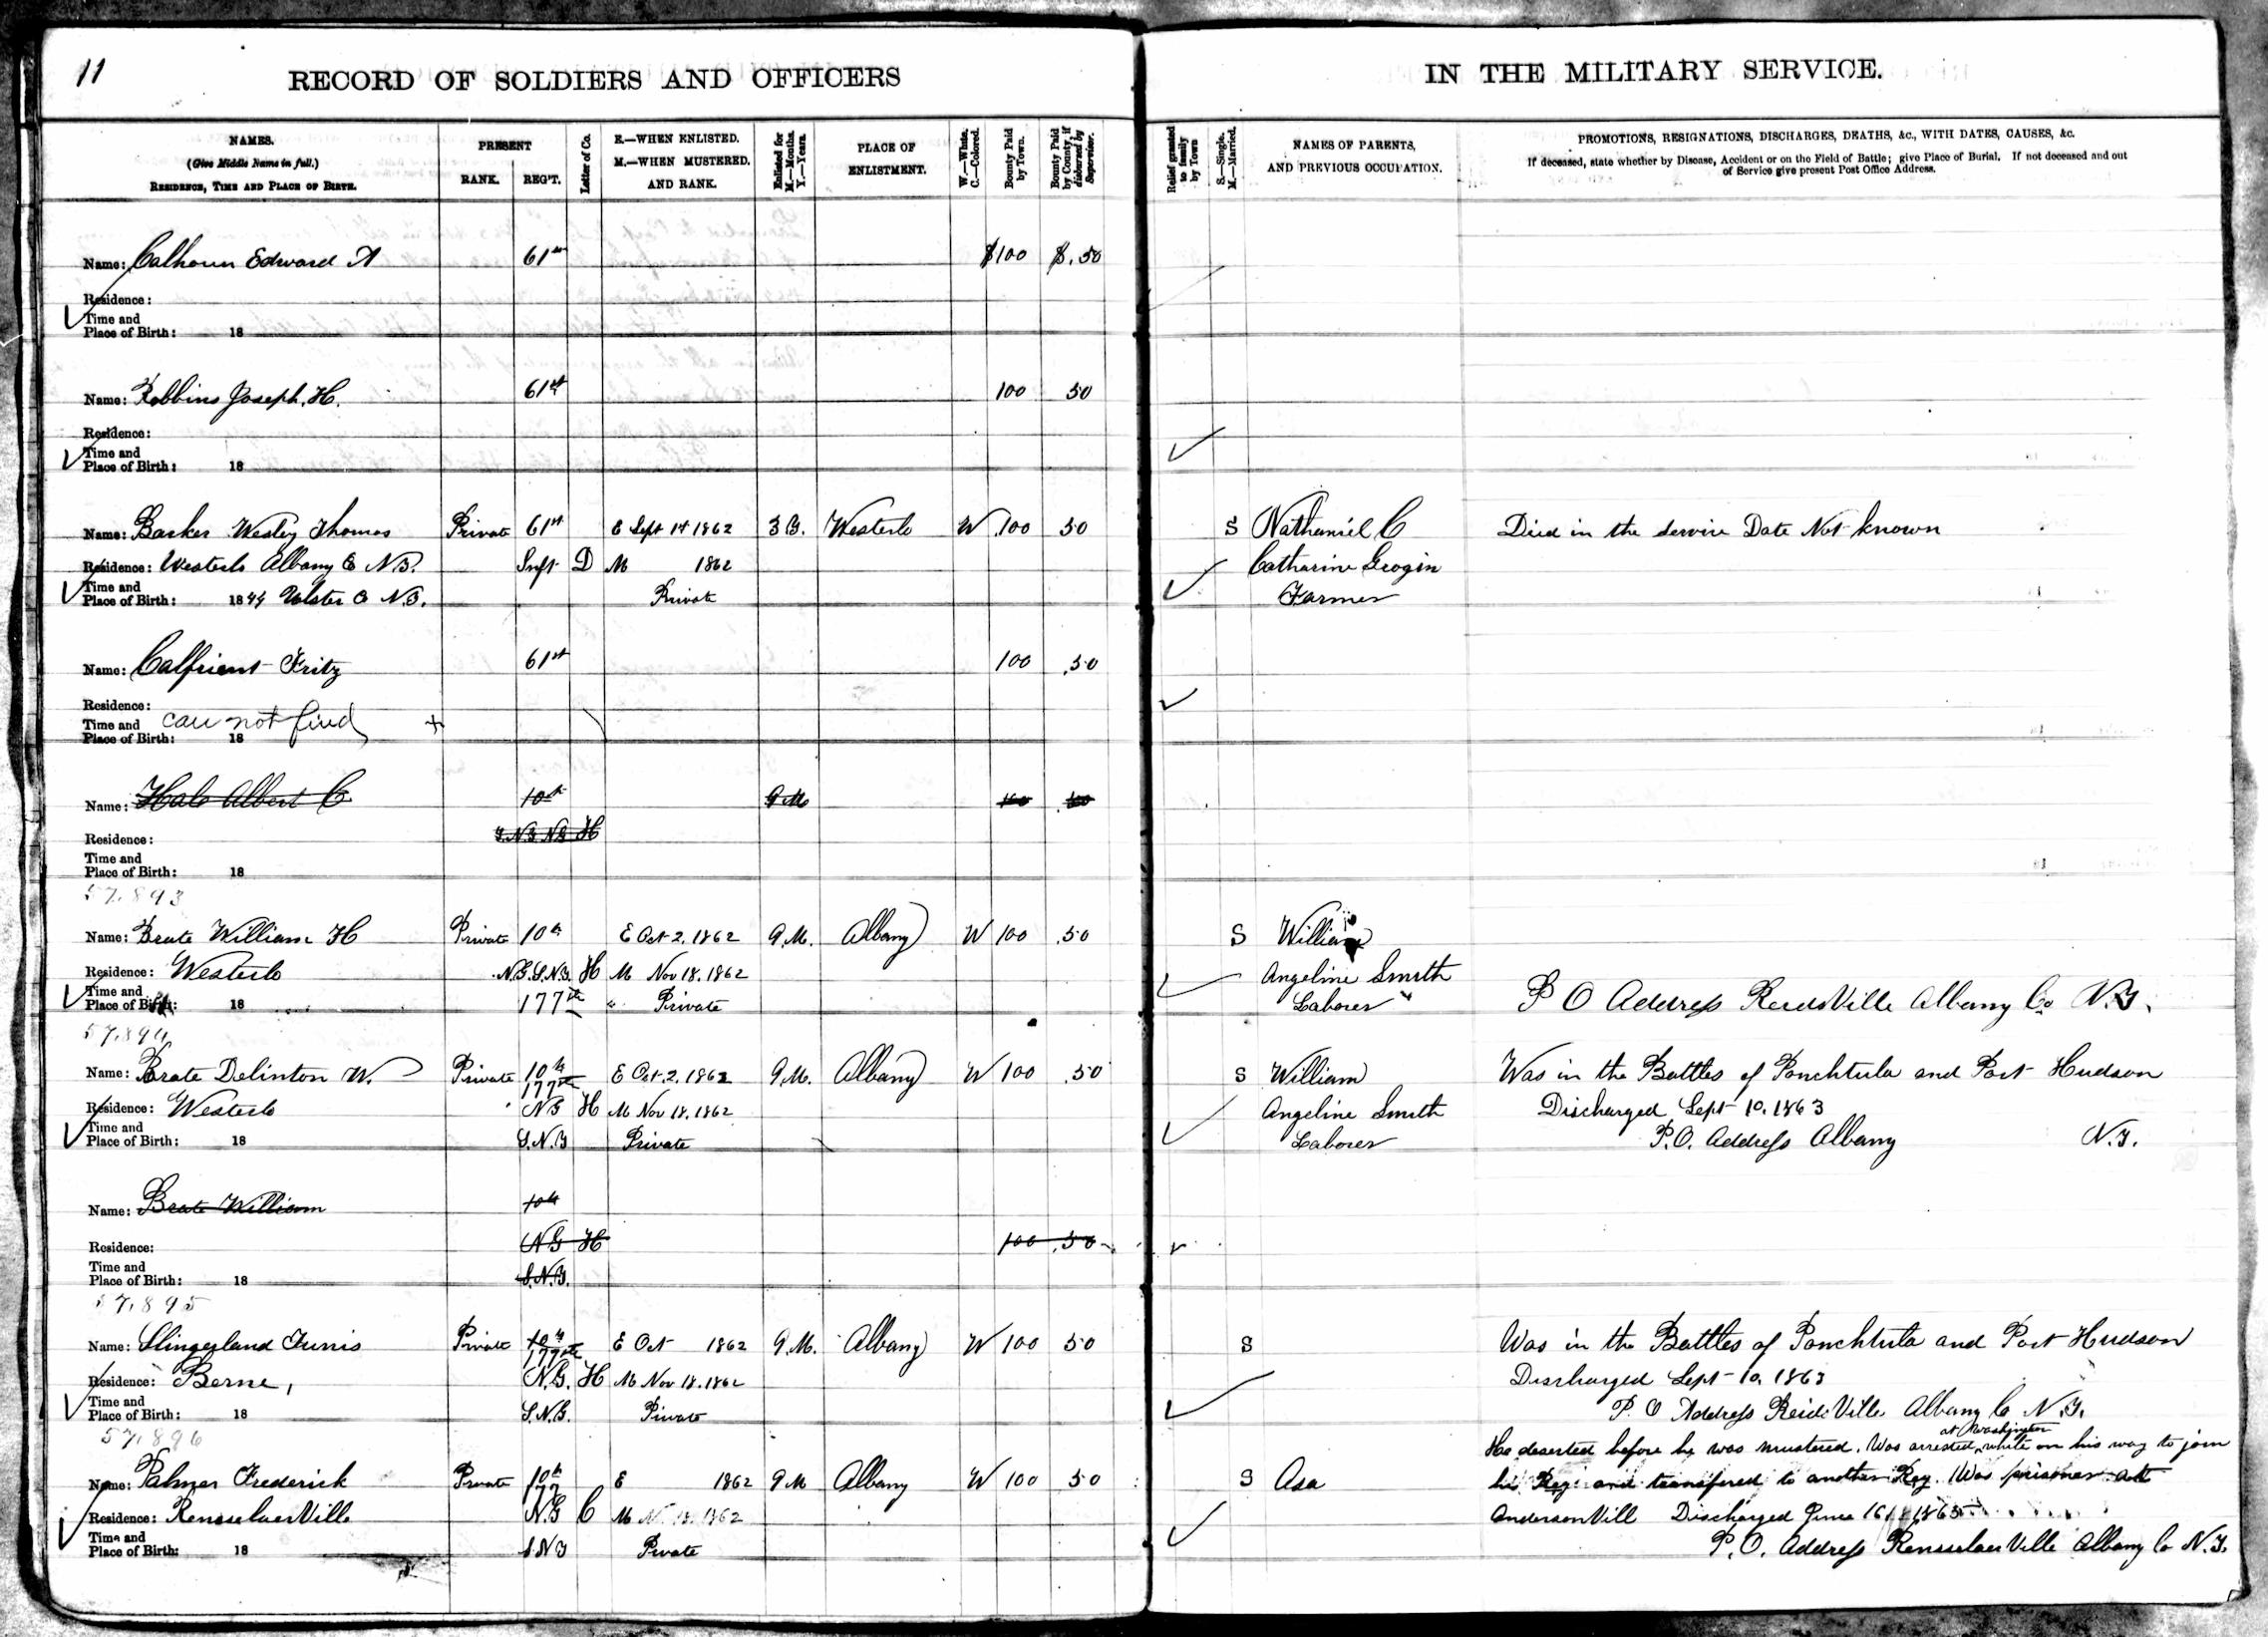 11
RECORD OF SOLDIERS AND OFFICERS
IN THE MILITARY SERVICE.
NAMES.
(Give Middle Name in full.)
RESIDENCE, TIME AND PLACE OF BIRTH.
PRESENT
RANK.
REG'T.
Letter of Co.
E.—WHEN ENLISTED.
M.—WHEN MUSTERED.
AND RANK.
Enlisted for
M.—Months.
Y.—Years.
PLACE OF
ENLISTMENT.
W.—White.
C.—Colored.
Bounty Paid
by Town.
Bounty Paid
by County, if
disbursed by
Supervisor.
Relief granted
to family
by Town
S.—Single.
M.—Married.
NAMES OF PARENTS,
AND PREVIOUS OCCUPATION.
PROMOTIONS, RESIGNATIONS, DISCHARGES, DEATHS, &c., WITH DATES, CAUSES, &c.
If deceased, state whether by Disease, Accident or on the Field of Battle; give Place of Burial. If not deceased and out
of Service give present Post Office Address.
Name: Calhoun Edward A 61st $100 $.50
Residence:
Time and
Place of Birth: 18
Name: Robbins Joseph. H. 61st 100 50
Residence:
Time and
Place of Birth: 18
Name: Barker Wesley Thomas Private 61st E Sept 1st 1862 3 Y. Westerlo W 100 50 S Nathaniel C Died in the Service Date Not known
Residence: Westerlo Albany Co N.Y. Inft D M 1862 Catharine Grogin
Time and
Place of Birth: 1844 Ulster Co N.Y. Private Farmer
Name: Calfrient Fritz 61st 100 .50
Residence:
Time and can not find +
Place of Birth: 18
Name: Hale Albert C. 10th 9 M 100
Residence: S.N.Y N.G H
Time and
Place of Birth: 18
57.893
Name: Brate William H Private 10th E Oct 2. 1862 9.M. Albany W 100 .50 S William
Residence: Westerlo N.G.S.N.Y. H M Nov 18. 1862 Angeline Smith
Time and
Place of Birth: 18 177th " Private Laborer " P O Address ReidsVille Albany Co N.Y.
57.894
Name: Brate Delinton W. Private 10th E Oct. 2. 1862 9.M. Albany W 100 .50 S William Was in the Battles of Ponchtula and Port Hudson
177th
Residence: Westerlo NG H M Nov 18. 1862 Angeline Smith Discharged Sept 10. 1863
Time and
Place of Birth: 18 S.N.Y Private Laborer P.O. Address Albany N.Y.
Name: Brate William 10th
Residence: N G H 100 .50
Time and
Place of Birth: 18 S.N.Y.
57.895
Name: Slingerland Tunis Private 10th E Oct 1862 9.M. Albany W 100 50 S Was in the Battles of Ponchtula and Port Hudson
177th
Residence: Berne, N.G. H M Nov 18. 1862 Discharged Sept 10. 1863
Time and
Place of Birth: 18 S.N.Y. Private P. O Address ReidsVille Albany Co N.Y.
57.896
at Washington
He deserted before he was mustered. Was arrested while on his way to join
Name: Palmer Frederick Private 10th E 1862 9 M Albany W 100 50 S Asa his Reg. and transfered to another Reg. Was prisoner at
177
Residence: RensselaerVille N.G C M N. 18. 1862 AndersonVill Discharged June 16 1865
Time and
Place of Birth: 18 S.N.Y Private P. O. Address RensselaerVille Albany Co N.Y.